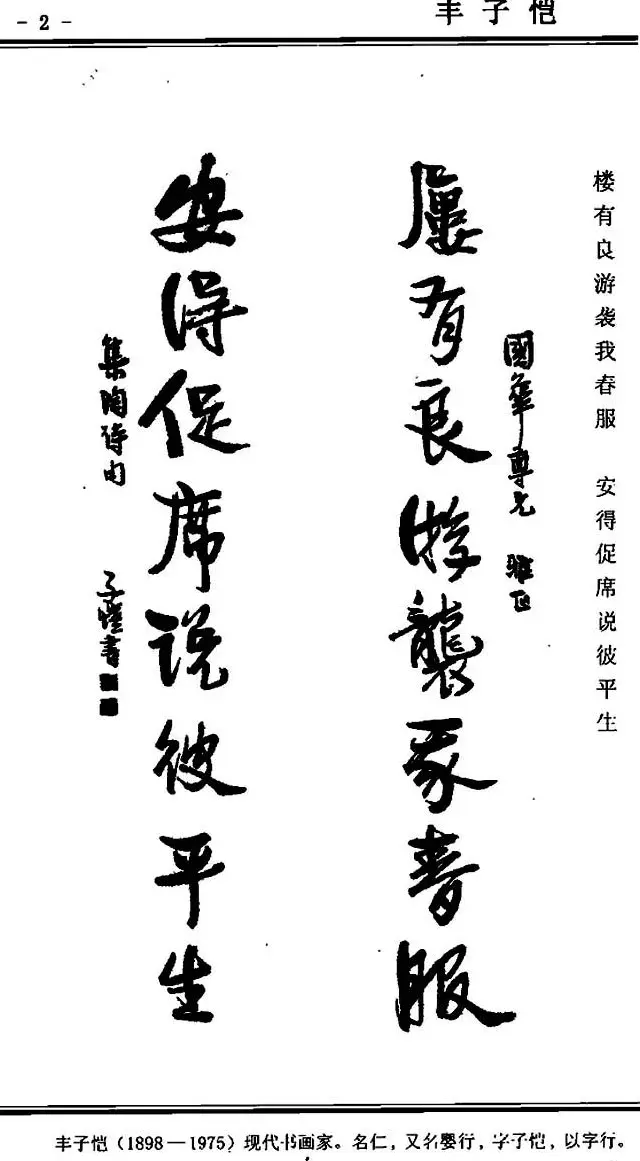 - 2 -
丰子恺
楼有良游袭我春服 安得促席说彼平生
國華尊兄 雅正
屢有良游襲我春服
安得促席说彼平生
集陶詩句 子愷書
丰子恺（1898—1975）现代书画家。名仁，又名婴行，字子恺，以字行。